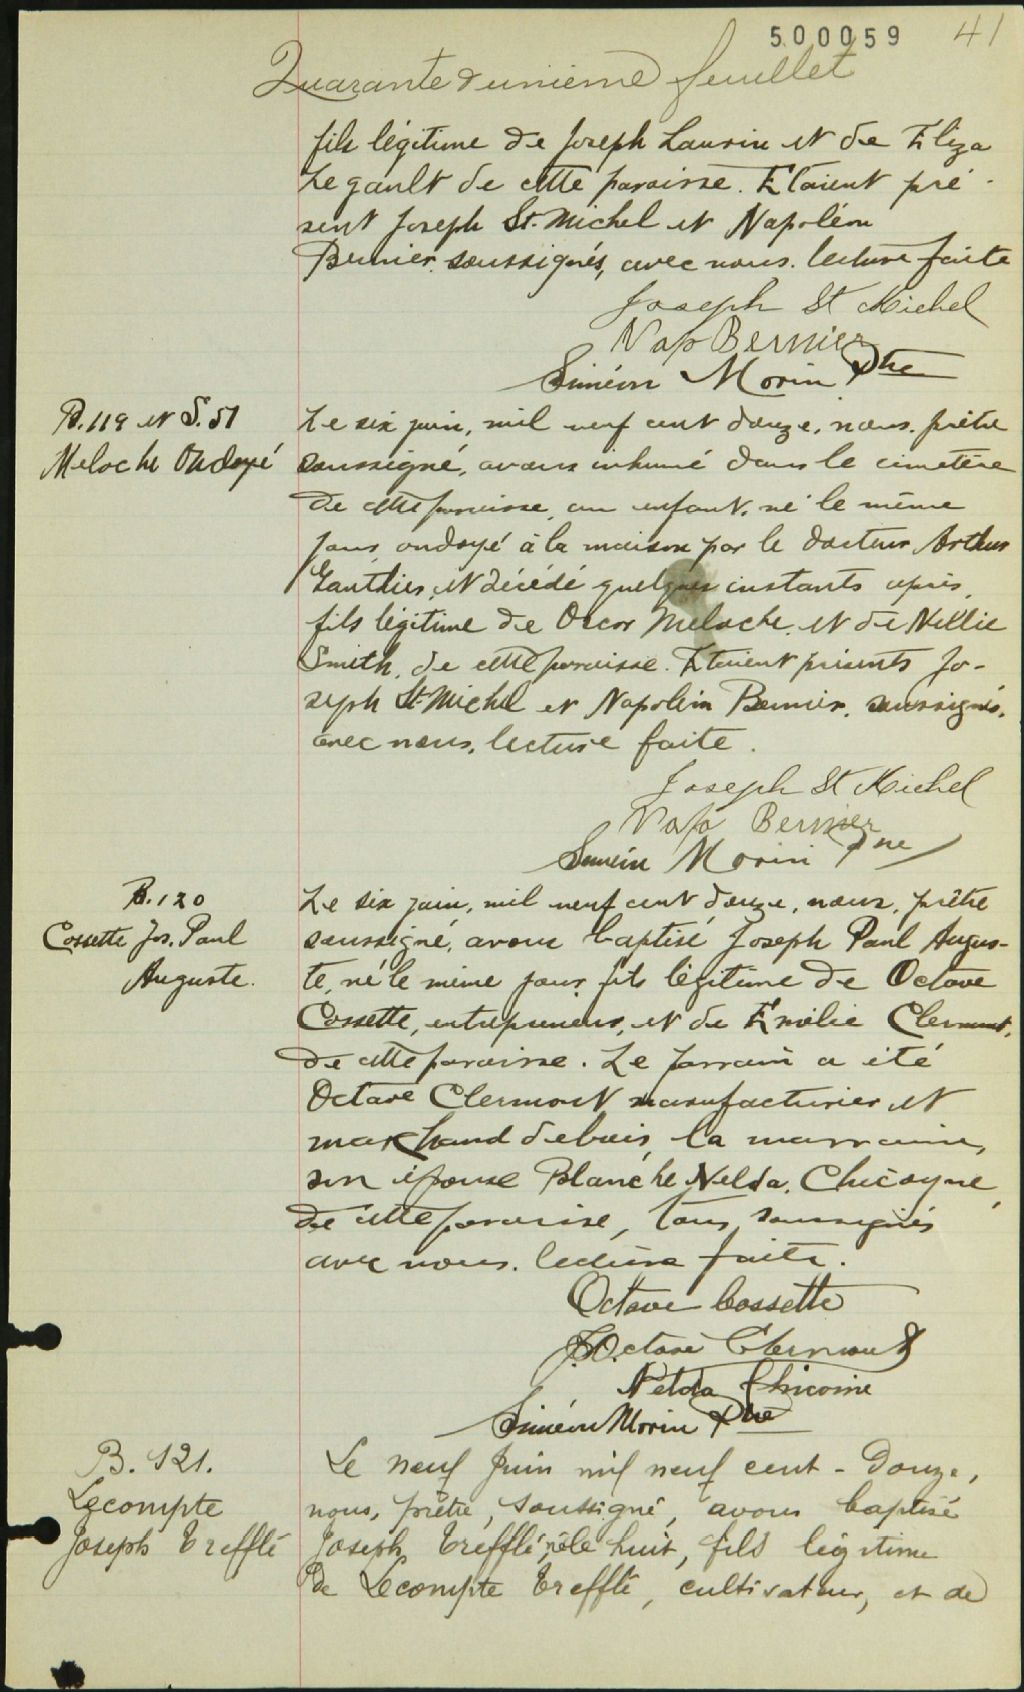 500059 41
Quarante & unième feuillet
fils légitime de Joseph Laurin et de Eliza
Legault de cette paroisse. Etaient pré-
sent Joseph St-Michel et Napoléon
Bernier. soussignés, avec nous. lecture faite
Joseph St Michel
Nap Bernier
Siméon Morin Ptre
B. 119 et S. 51
Meloche Ondoyé
Le six juin, mil neuf cent douze, nous, prêtre
soussigné, avons inhumé dans le cimetière
de cette paroisse, un enfant, né le même
jour ondoyé à la maison par le docteur Arthur
Gauthier, et décédé quelques instants après,
fils légitime de Oscar Meloche, et de Nellie
Smith, de cette paroisse. Etaient présents Jo-
seph St-Michel et Napoléon Bernier, soussignés.
avec nous, lecture faite.
Joseph St Michel
Nap Bernier
Siméon Morin Ptre
B. 120
Cossette Jos. Paul
Auguste.
Le six juin, mil neuf cent douze, nous, prêtre
soussigné, avons baptisé Joseph Paul Augus-
te, né le même jour, fils légitime de Octave
Cossette, entrepreneur, et de Emélie Clermont,
de cette paroisse. Le parrain a été
Octave Clermont manufacturier et
marchand de bois, la marraine,
son épouse Blanche Nelda Chicoyne,
de cette paroisse, tous soussignés
avec nous. lecture faite.
Octave Cossette
J. O. ctave Clermont
Nelda Chicoine
Siméon Morin Ptre
B. 121.
Lecompte
Joseph Trefflé
Le neuf Juin mil neuf cent - Douze,
nous, prêtre, soussigné, avons baptisé
Joseph Trefflé, né le huit, fils légitime
de Lecompte Trefflé, cultivateur, et de